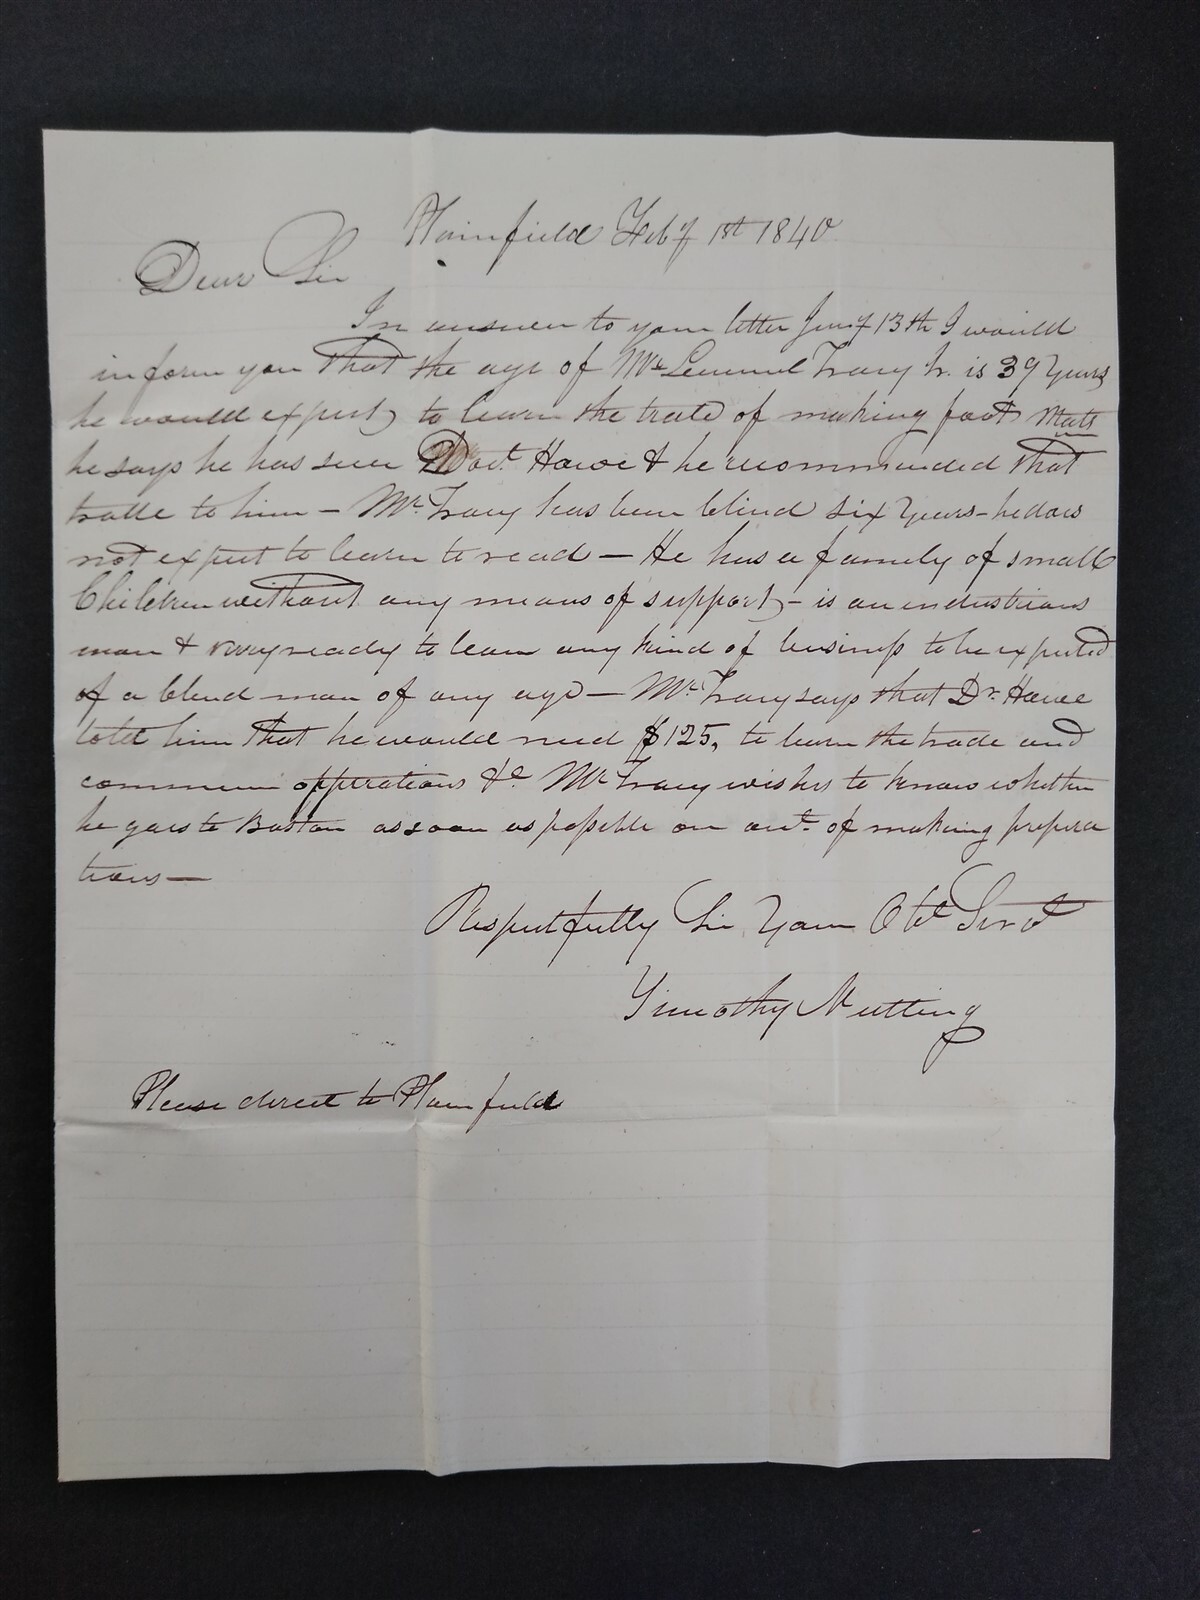 Plainfield Feby 1st 1840
Dear Sir
In answer to your letter Jany 13th I would
inform you that the age of Mr Lemuel Tracy Jr. is 39 Years
he would expect to learn the trade of making foot Matts
he says he has seen Doct. Howe & he recommended that
trade to him — Mr Tracy has been blind six Years – he does
not expect to learn to read — He has a family of small
Children without any means of support – is an industrious
man & very ready to learn any kind of business to be expected
of a blind man of any age — Mr Tracy says that Dr Howe
told him that he would need $125, to learn the trade and
commence opperations &c Mr Tracy wishes to know whether
he goes to Boston as soon as possible on act. of making prepera
tions —
Respectfully Sir Your Obt Servt
Timothy Nutting
Please direct to Plainfield